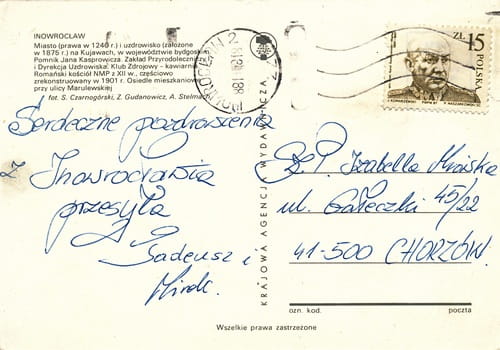 INOWROCŁAW
Miasto (prawa w 1240 r.) i uzdrowisko (założone
w 1875 r.) na Kujawach, w województwie bydgoskim
Pomnik Jana Kasprowicza. Zakład Przyrodoleczniczy
i Dyrekcja Uzdrowiska. Klub Zdrojowy - kawiarnia
Romański kościół NMP z XII w., częściowo
zrekonstruowany w 1901 r. Osiedle mieszkaniowe
przy ulicy Marulewskiej
fot. S. Czarnogórski, Z. Gudanowicz, A. Stelmach
INOWROCŁAW 2
ZŁ 15
POLSKA
Serdeczne pozdrowienia
z Inowrocławia
przesyła
Tadeusz i
Mirek.
KRAJOWA AGENCJA WYDAWNICZA
Sz. P. Izabella
ul. Gałeczki 45/22
41-500 CHORZÓW.
ozn. kod. poczta
Wszelkie prawa zastrzeżone